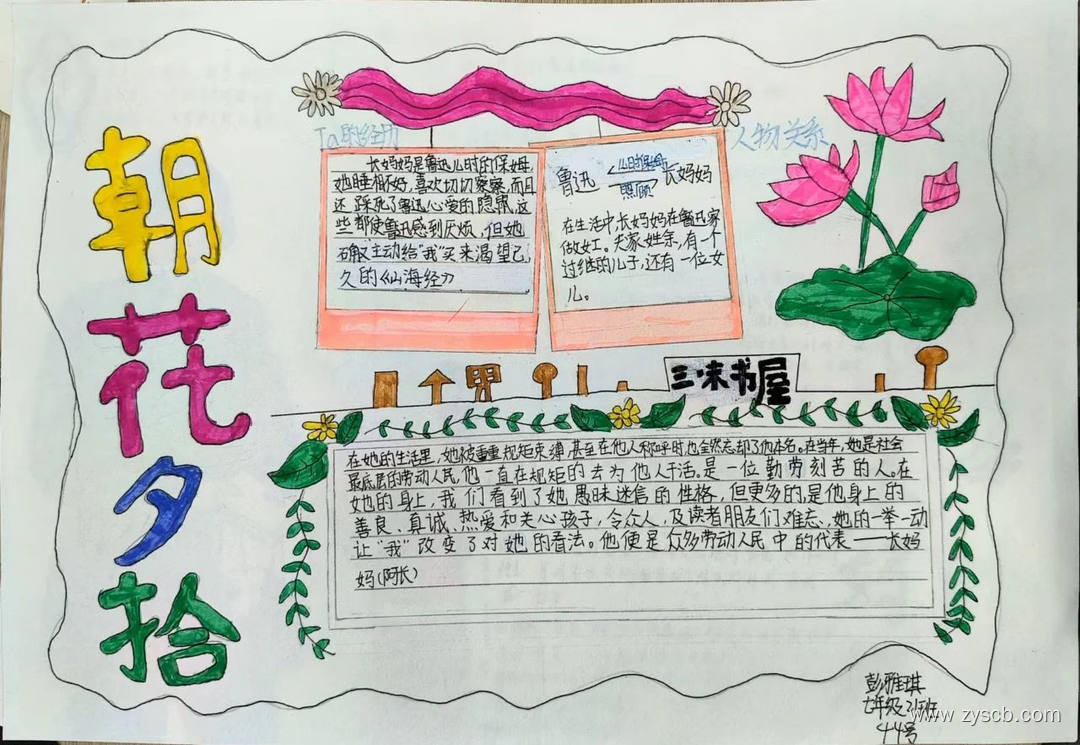 朝花夕拾
Ta的经历
长妈妈是鲁迅儿时的保姆,
她睡相不好,喜欢切切察察,而且
还踩死了鲁迅心爱的隐鼠,这
些都使鲁迅感到厌烦,但她
确主动给“我”买来渴望已
久的《山海经》
人物关系
鲁迅 儿时保姆 长妈妈
照顾
在生活中,长妈妈在鲁迅家
做女工。夫家姓余,有一个
过继的儿子,还有一位女
儿。
三味书屋
在她的生活里,她被重重规矩束缚,甚至在他人称呼时也全然忘却了他本名。在当年,她是社会
最底层的劳动人民,他一直在规矩的去为他人干活。是一位勤劳刻苦的人。在
她的身上,我们看到了她愚昧迷信的性格,但更多的,是他身上的
善良、真诚、热爱和关心孩子,令众人,及读者朋友们难忘,她的一举一动
让“我”改变了对她的看法。他便是众多劳动人民中的代表——长妈
妈(阿长)
彭雅琪
七年级
44号
www.zyscb.com